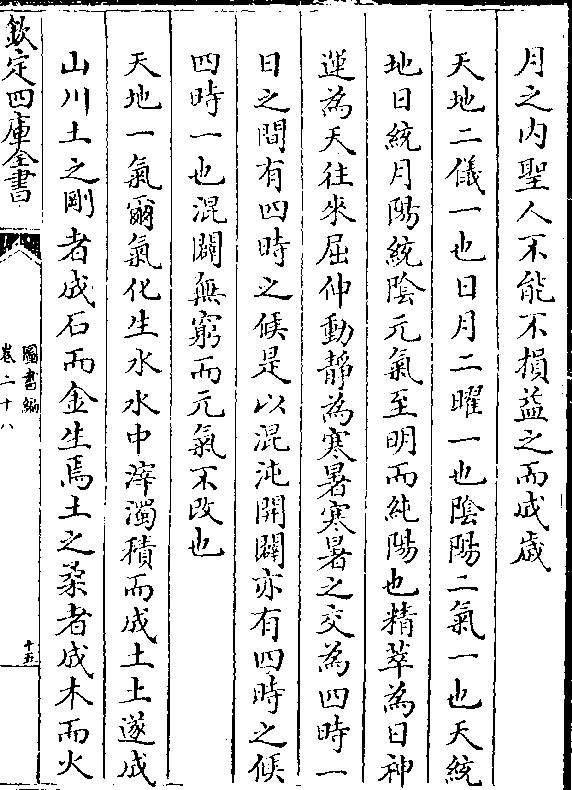 月之内聖人不能不損益之而成歲
天地二儀一也日月二曜一也陰陽二氣一也天統
地日統月陽統陰元氣至明而純陽也精萃為日神
運為天往來屈伸動靜為寒暑寒暑之交為四時一
日之間有四時之候是以混沌開闢亦有四時之候
四時一也混闢無窮而元氣不改也
天地一氣爾氣化生水水中滓濁積而成土土遂成
山川土之剛者成石而金生焉土之柔者成木而火
欽定四庫全書
圖書編
卷二十八
十五